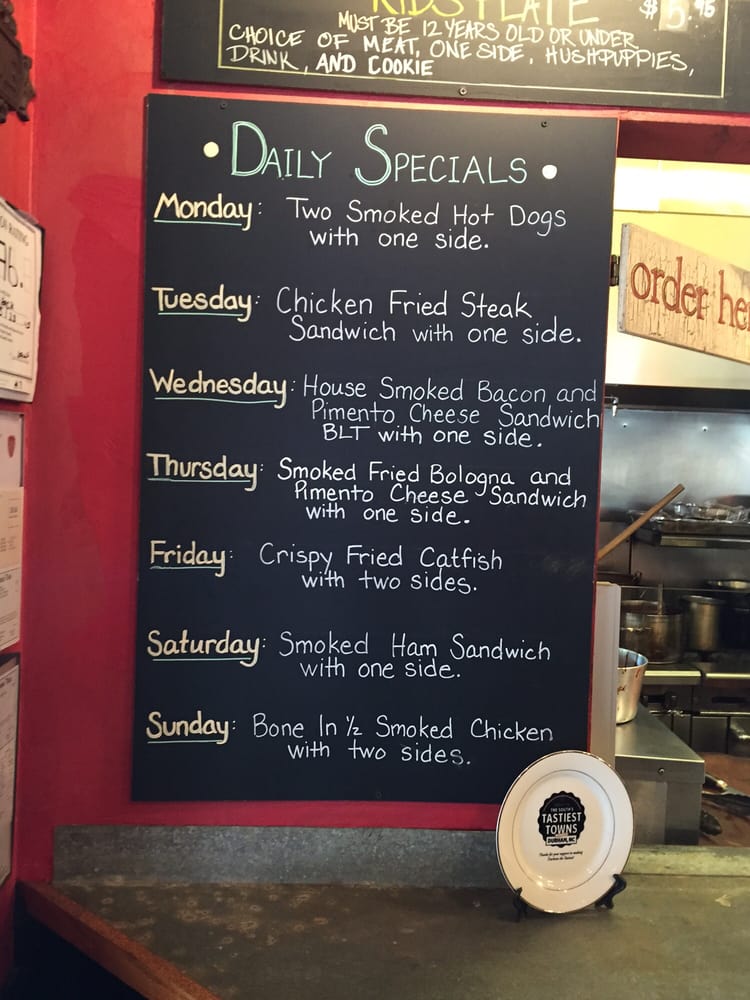 KIDS PLATE $5.95
MUST BE 12 YEARS OLD OR UNDER
CHOICE OF MEAT, ONE SIDE, HUSHPUPPIES,
DRINK, AND COOKIE
• DAILY SPECIALS •
Monday: Two Smoked Hot Dogs
with one side.
Tuesday: Chicken Fried Steak
Sandwich with one side.
Wednesday: House Smoked Bacon and
Pimento Cheese Sandwich
BLT with one side.
Thursday: Smoked Fried Bologna and
Pimento Cheese Sandwich
with one side.
Friday: Crispy Fried Catfish
with two sides.
Saturday: Smoked Ham Sandwich
with one side.
Sunday: Bone In ½ Smoked Chicken
with two sides.
order he
THE SOUTH'S
TASTIEST
TOWNS
DURHAM, NC